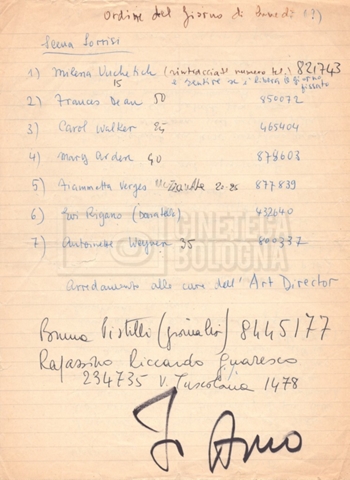 Ordine del giorno di Lunedì (?)
Scena Sorrisi
1) Milena Vuchetich (rintracciare numero tel.) 821743
15 e sentire se è libera il giorno fissato
2) Frances Dean 50 850072
3) Carol Walker 25 465404
4) Mary Arden 40 878603
5) Fiammetta Verges 20-25 877839
6) Evi Rigano 432640
7) Antoinette Wegner 35 800337
CINETECA
BOLOGNA
Arredamento alle cure dell'Art Director
Bruna Pistelli (giornalis) 8445177
Ragassino Riccardo Guaresco
234735 V. Tuscolana 1478